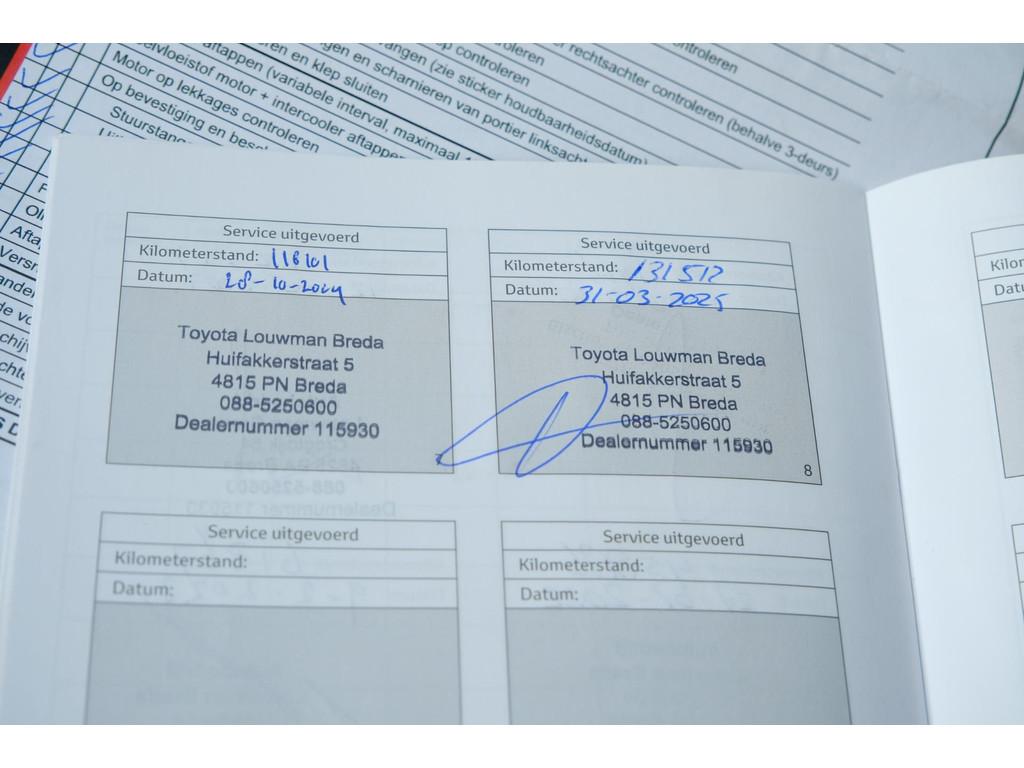 controleren
rechtsachter controleren (behalve 3-deurs)
controleren
vangen (zie sticker houdbaarheidsdatum)
en scharnieren van portier linksach
en klep sluiten
aftappen (variabele interval, maximaal
elvloeistof motor + intercooler aftappen
Motor op lekkages controleren
Op bevestiging en besc
Stuurstang
Service uitgevoerd
Kilometerstand: 118101
Datum: 28-10-2024
Toyota Louwman Breda
Huifakkerstraat 5
4815 PN Breda
088-5250600
Dealernummer 115930
Service uitgevoerd
Kilometerstand: 131512
Datum: 31-03-2025
Toyota Louwman Breda
Huifakkerstraat 5
4815 PN Breda
088-5250600
Dealernummer 115930
8
Service uitgevoerd
Kilometerstand:
Datum:
Service uitgevoerd
Kilometerstand:
Datum: